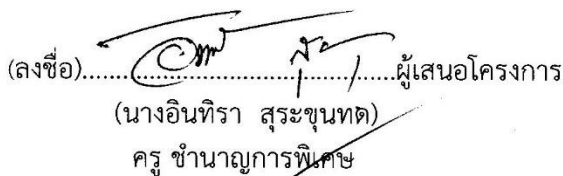 (ลงชื่อ)....................................................ผู้เสนอโครงการ
(นางอินทิรา สุระขุนทด)
ครู ชำนาญการพิเศษ